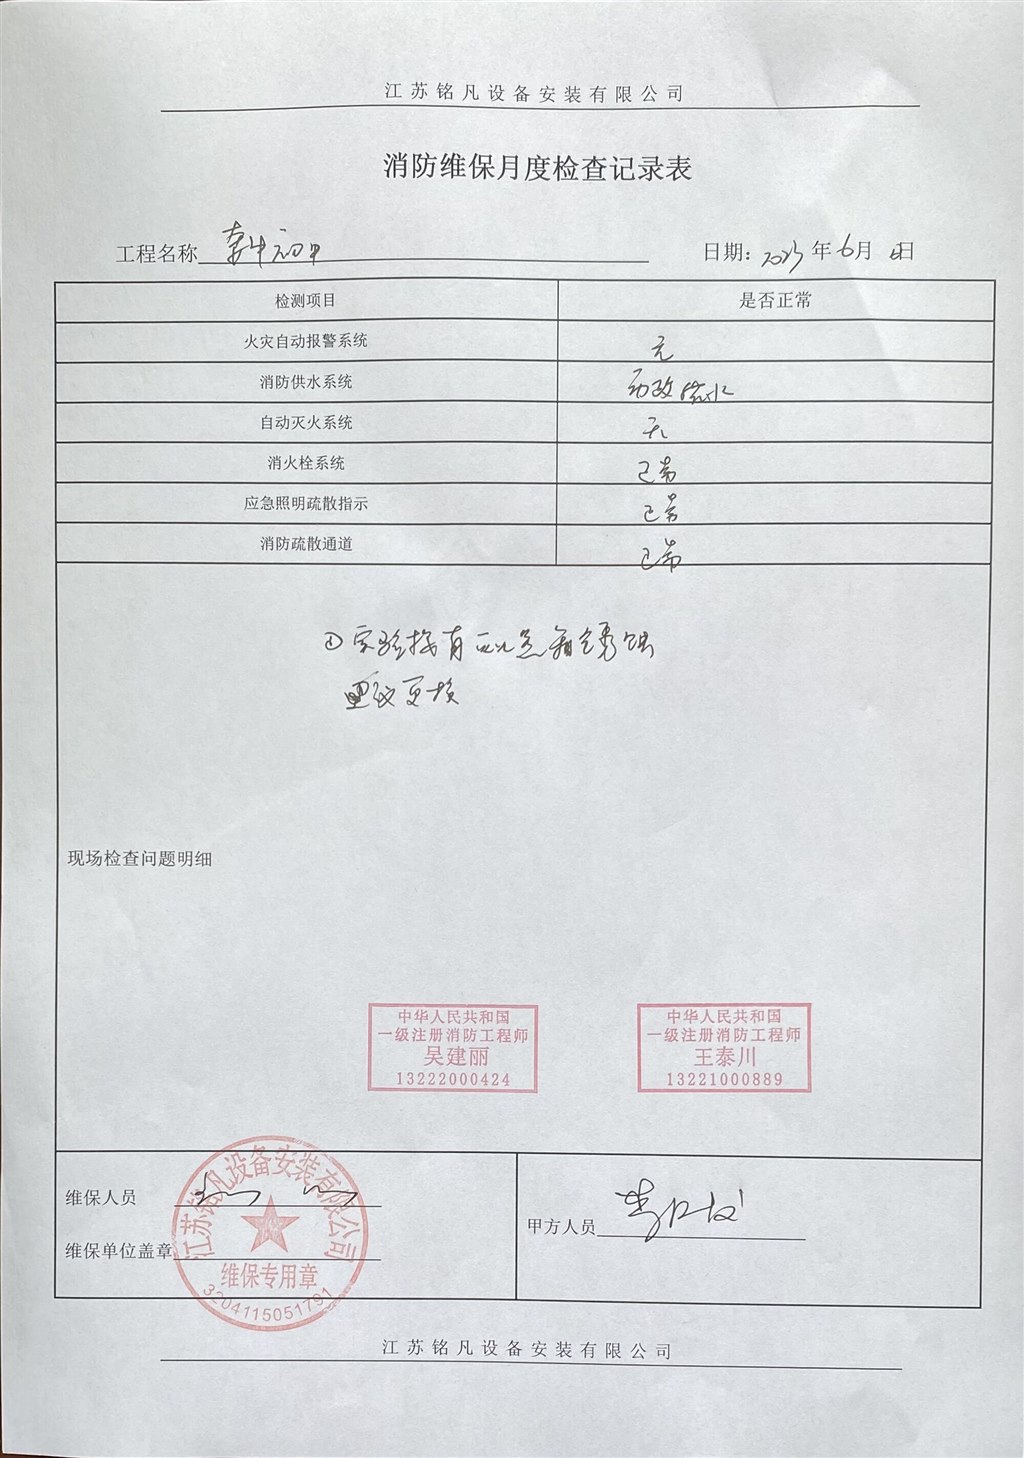 江苏铭凡设备安装有限公司
消防维保月度检查记录表
工程名称 初中 日期: 2023年6月 日
检测项目 是否正常
火灾自动报警系统 无
消防供水系统 市政供水
自动灭火系统 无
消火栓系统 正常
应急照明疏散指示 正常
消防疏散通道 正常
①实验楼有 锈蚀
建议更换
现场检查问题明细
中华人民共和国
一级注册消防工程师
吴建丽
13222000424
中华人民共和国
一级注册消防工程师
王泰川
13221000889
维保人员
甲方人员
维保单位盖章
江苏铭凡设备安装有限公司
维保专用章
3204115051791
江苏铭凡设备安装有限公司